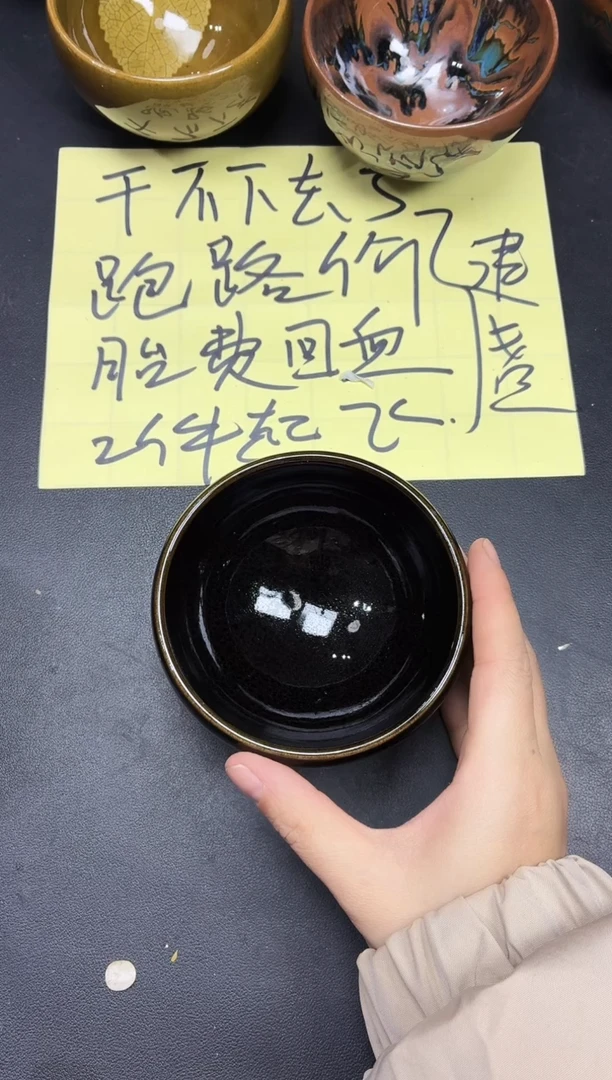 干不下去了
跑路价
胎费回血
2件起飞
建盏